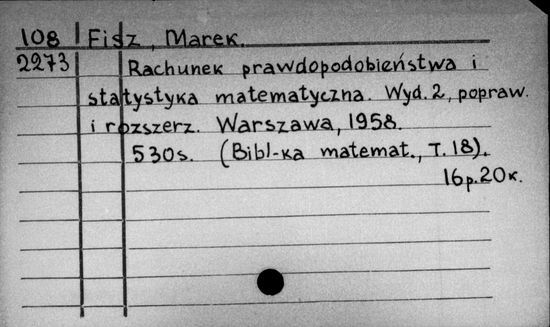 108 Fisz, Marek.
2273 Rachunek prawdopodobieństwa i
statystyka matematyczna. Wyd. 2, popraw.
i rozszerz. Warszawa, 1958.
530 s. (Bibl-ka matemat., T. 18).
16 р. 20 к.